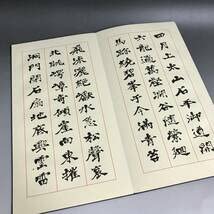 四月上太山石平御道開
六龍過萬壑澗谷隨縈迴
馬跡繞碧峯于今滿青苔
飛流灑絕巘水急松聲哀
北眺崿嶂奇傾崖向東摧
洞門閉石扇地底興雲雷